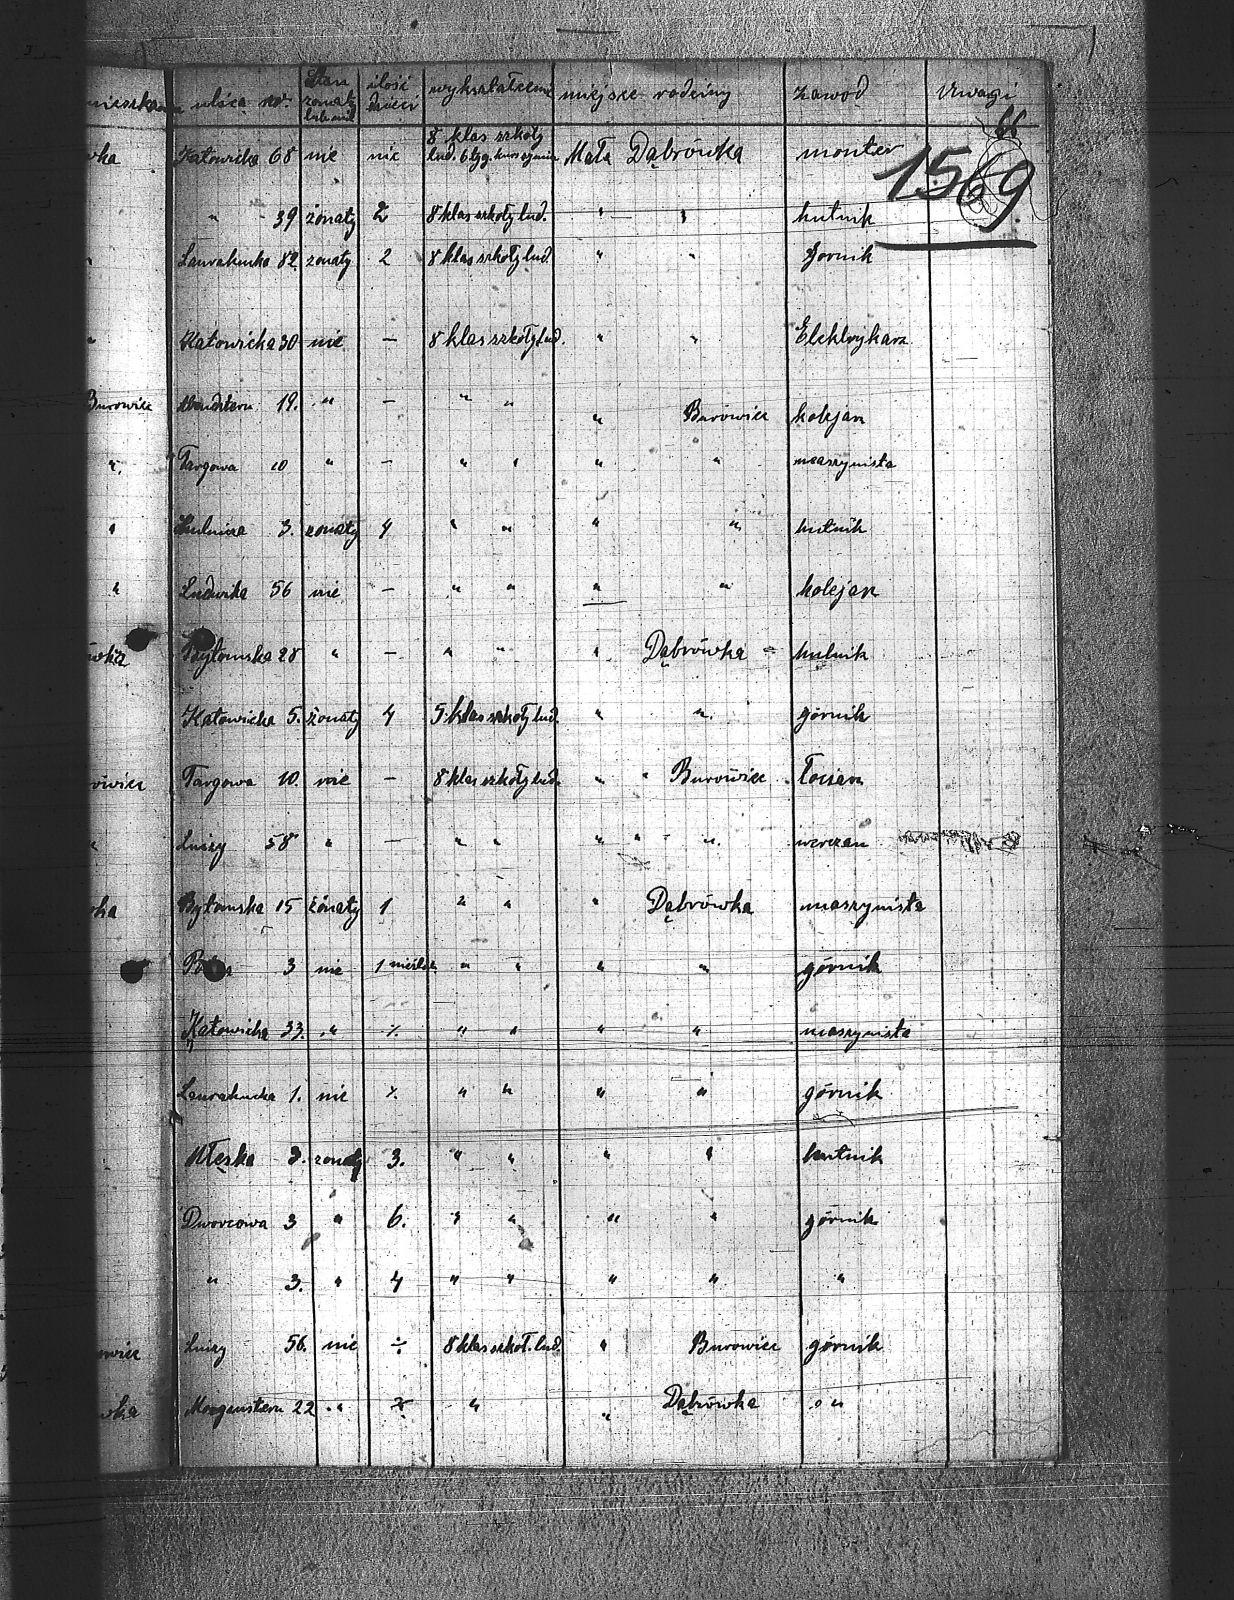 ulica nr. Stan żonaty lub nie ilość dzieci wykształcenie miejsce rodziny zawod Uwagi
66
8 klas szkoły
wka Katowicka 68 nie nie lud. 6 tyg. Mała Dąbrówka monter
1569
" 39 żonaty 2 8 klas szkoły lud. " " hutnik
" Laurahucka 82. zonaty 2 8 klas szkoły lud. " " Gornik
" Katowicka 30 nie — 8 klas szkoły lud. " " Elektrykarz
Burowiec 19. " — " " " Burowiec kolejarz
" Targowa 10 " — " " " " maszynista
" 3. zonaty 4 " " " " hutnik
" Ludwika 56 nie — " " " " kolejarz
ówka Bytomska 28 " — " " " Dąbrówka hutnik
Katowicka 5. żonaty 4 5 klas szkoły lud. " " górnik
owiec Targowa 10. nie — 8 klas szkoły lud. " " Burowiec
" Luizy 58 " — " " " " "
wka Bytomska 15 żonaty 1 " " " Dąbrówka maszynista
3 nie 1 " " " " górnik
Katowicka 33. " % " " " " maszynista
Laurahucka 1. nie % " " " " górnik
Męska 3. zonaty 3. " " " " hutnik
Dworcowa 3 " 6. " " " " górnik
" 3. " 4 " " " " "
owiec Luizy 56. nie ÷ 8 klas szkoł. lud. " Burowiec górnik
wka Morgenstern 22 " % " " Dąbrówka "